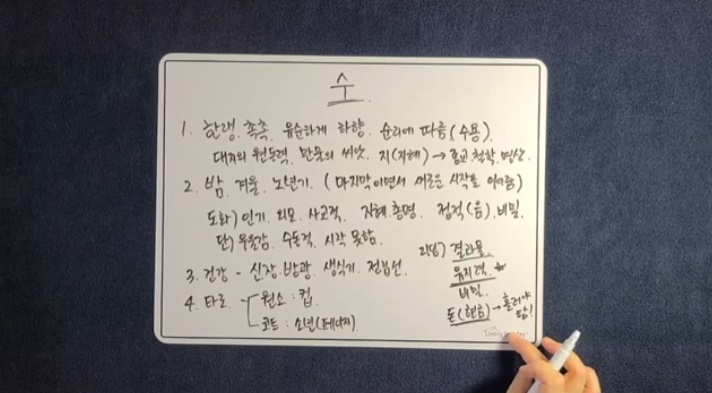 수
1. 한랭. 촉촉. 유순하게 하향. 순리에 따름(수용).
대지의 원동력. 만물의 씨앗. 지(지혜) → 종교.철학.명상.
2. 밤. 겨울. 노년기. (마지막이면서 새로운 시작을)
도화) 인기. 외모. 사교적. 지혜.총명. 정적(음). 비밀.
단) 우울감. 수동적. 시작 못함.
3. 건강 - 신장.방광. 생식기. 전립선.
4. 타로 - 원소 : 컵.
코트 : 소년(페이지).
결과물.
유지력.
비밀.
돈(현금) → 흘러야 함!